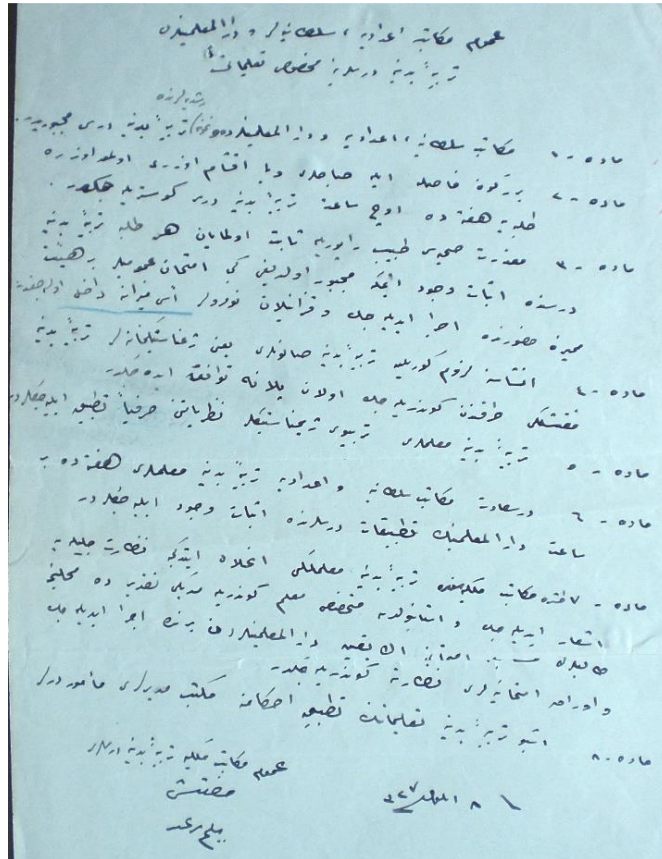 عموم مكاتب اعداديه ، سلطانيه لر و دار المعلمينلرك
تربيۀ بدنيه درسلرينه مخصوص تعليماتى
رشديه لرنده
ماده - ١ مكاتب سلطانيه ، اعداديه و دار المعلمينلرده تربيۀ بدنيه درسى مجبوريدر.
ماده - ٢ بركون فاصله ايله صباحلرى ويا اقشام اوزرى اولمق اوزره
طلبه يه هفته ده اوچ ساعت تربيۀ بدنيه درسى كوستريله جكدر .
ماده - ٣ معذرت صحيه سى طبيب راپوريله ثابت اولمايان هر طلبه تربيۀ بدنيه
درسنده اثبات وجود ايتمكه مجبور اولديغى كبى امتحان عموميلر برهيئت
مميزه حضورنده اجرا ايديله جك و قزانيلان نومرولر
ماده - ٤ انشاسنه لزوم كوريلن تربيۀ بدنيه صالونلرى يعنى ژيمناستيكخانه لر تربيۀ بدنيه
مفتشلكى طرفندن كوندريله جك اولان پلانه توافق ايده جكدر
ماده - ٥ تربيۀ بدنيه معلملرى تربيوى ژيمناستيكك نظرياتنى حرفياً تطبيق ايده جكلردر
ماده - ٦ درسعادت مكاتب سلطانيه و اعداديه تربيۀ بدنيه معلملرى هفته ده بر
ساعت دار المعلمينك تطبيقات درسلرنده اثبات وجود ايليه جكلردر
ماده - ٧ مكاتب ملكيه تربيۀ بدنيه معلملكى انحلال ايتدكده نظارت جليله يه
اشعار ايديله جك و استانبولدن متخصص معلم كوندريله مديكى تقديرده محلنجه
دار المعلمينلردن برنده اجرا ايديله جك
و اوراق امتحانيه لرى نظارته كوندريله جكدر
ماده - ٨ اشبو تربيۀ بدنيه تعليماتنك تطبيق احكامنه مكتب مديرلرى مأموردرلر
عموم مكاتب ملكيه تربيۀ بدنيه
مفتشى
٨ ايلول ٣٢٧